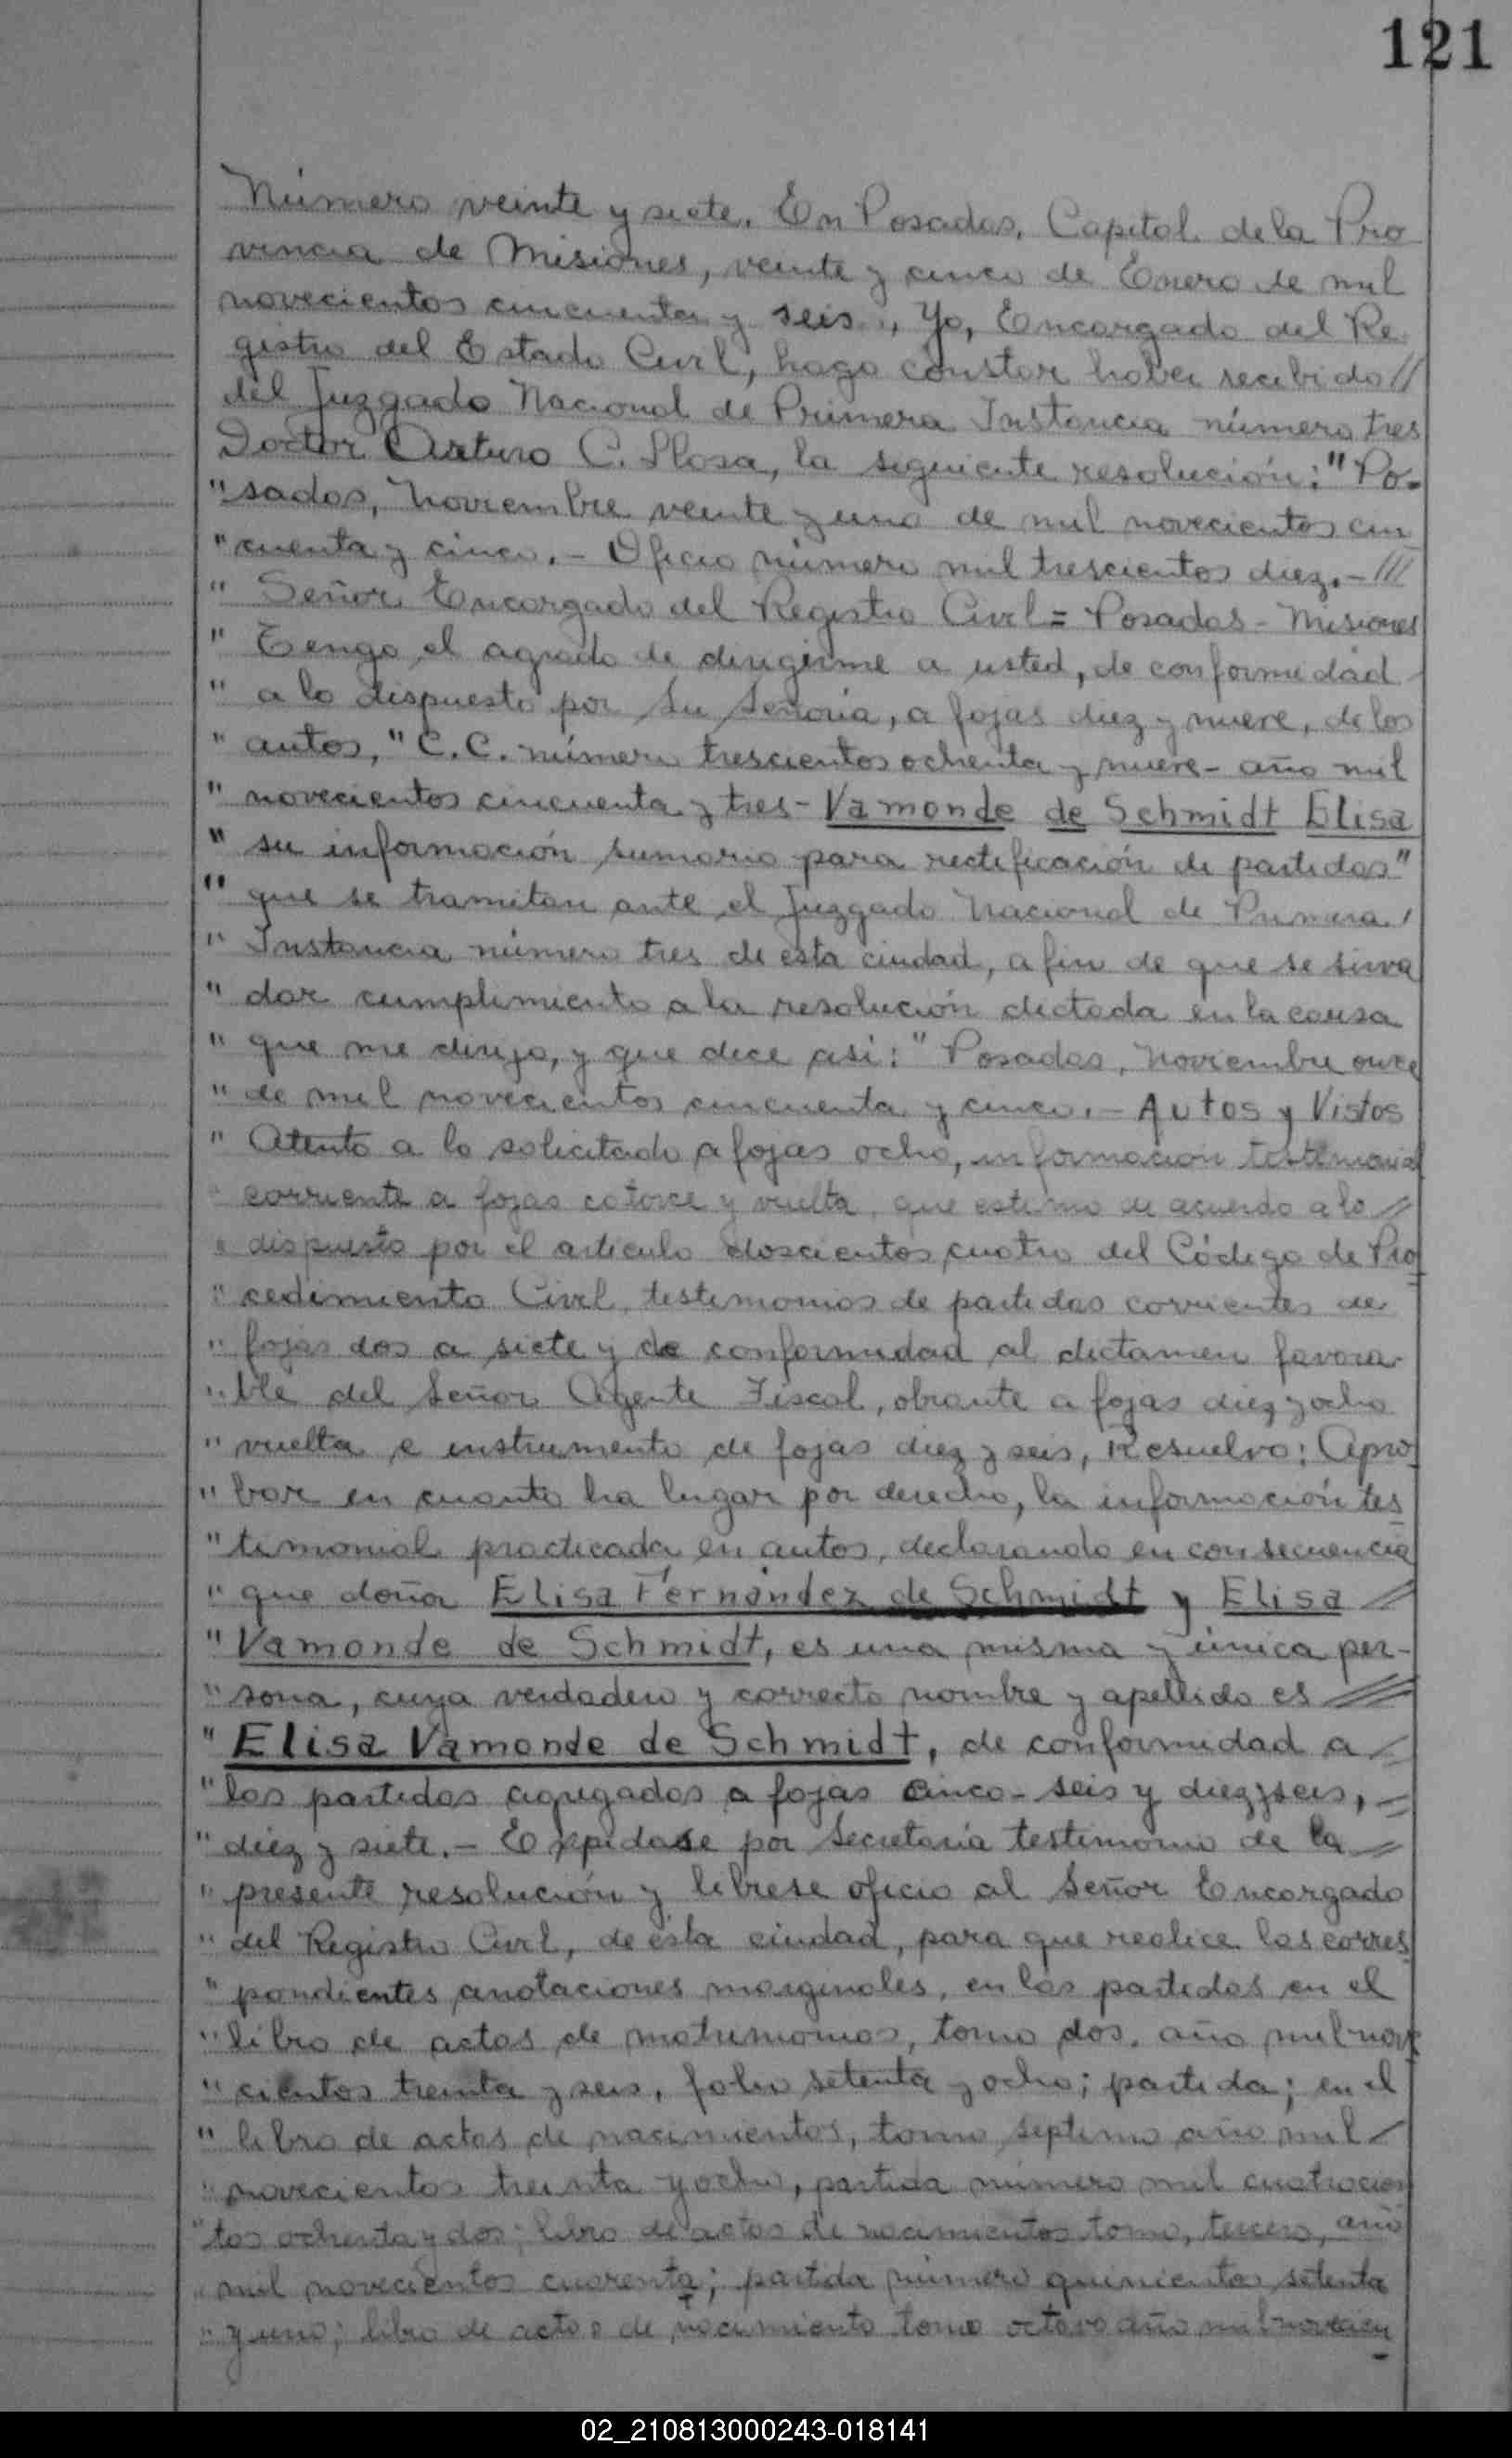 121
Número veinte y siete. En Posadas, Capital de la Pro
vincia de Misiones, veinte y cinco de Enero de mil
novecientos cincuenta y seis, Yo, Encargado del Re
gistro del Estado Civil, hago constar haber recibido //
del Juzgado Nacional de Primera Instancia número tres
Doctor Arturo C. Llosa, la siguiente resolución: "Po-
"sadas, Noviembre veinte y uno de mil novecientos cin
"cuenta y cinco.- Oficio número mil trescientos diez.- ///
" Señor Encargado del Registro Civil = Posadas - Misiones
" Tengo el agrado de dirigirme a usted, de conformidad
" a lo dispuesto por Su Señoria, a fojas diez y nueve, de los
" autos, "C.C. número trescientos ochenta y nueve - año mil
" novecientos cincuenta y tres - Vamonde de Schmidt Elisa
" su información sumaria para rectificación de partidas"
" que se tramitan ante el Juzgado Nacional de Primera /
" Instancia número tres de esta ciudad, a fin de que se sirva
" dar cumplimiento a la resolución dictada en la causa
" que me dirijo, y que dice asi: "Posadas, Noviembre once
" de mil novecientos cincuenta y cinco.- Autos y Vistos
" Atento a lo solicitado a fojas ocho, informacion testimonial
" corriente a fojas catorce y vuelta, que estimo de acuerdo a lo //
" dispuesto por el articulo doscientos cuatro del Código de Pro
" cedimiento Civil, testimonios de partidas corrientes de
" fojas dos a siete y de conformidad al dictamen favora
" ble del Señor Agente Fiscal, obrante a fojas diez y ocho
" vuelta e instrumento de fojas diez y seis, Resuelvo: Apro
" bar en cuanto ha lugar por derecho, la información tes
" timonial practicada en autos, declarando en consecuencia
" que doña Elisa Fernández de Schmidt y Elisa //
" Vamonde de Schmidt, es una misma y única per-
" sona, cuya verdadero y correcto nombre y apellido es ///
" Elisa Vamonde de Schmidt, de conformidad a //
" las partidas agregadas a fojas cinco - seis y diez y seis, =
" diez y siete.- Expidase por Secretaria testimonio de la //
" presente resolución y librese oficio al Señor Encargado
" del Registro Civil, de ésta ciudad, para que realice las corres
" pondientes anotaciones marginales, en las partidas en el
" libro de actas de matrimonios, tomo dos, año mil nove
" cientos treinta y seis, folio setenta y ocho; partida; en el
" libro de actas de nacimientos, tomo septimo año mil /
" novecientos treinta y ocho, partida número mil cuatrocien
" tos ochenta y dos; libro de actas de nacimientos tomo, tercero, año
" mil novecientos cuarenta; partida número quinientos setenta
" y uno; libro de actas de nacimiento tomo octavo año mil novecien
02_210813000243-018141